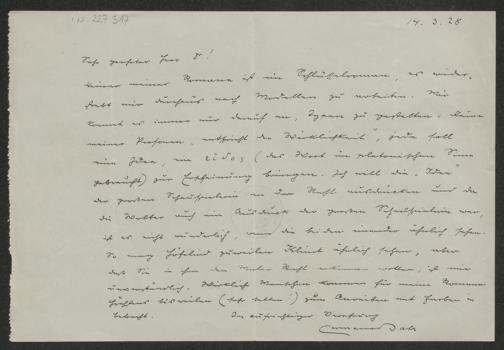 I.N. 227 317
14. 3. 28
Sehr geehrter Herr D!
Keiner meiner Romane ist ein Schlüsselroman, es wider-
strebt mir durchaus nach Modellen zu arbeiten. Mir
kommt es immer nur darauf an, Typen zu gestalten. Keine
meiner Personen „entspricht der Wirklichkeit“, jede soll
eine Idee, ein εἶδος (das Wort im platonischen Sinn
gebraucht) zur Erscheinung bringen. Ich will die „Idee“
der großen Schauspielerin in der Rahl ausdrücken und da
die Wolter auch ein Ausdruck der großen Schauspielerin war,
ist es nicht wunderlich, wenn die beiden einander ähnlich sehen.
So mag Höfelind zuweilen Klimt ähnlich sehen, aber
daß Sie in ihm den Maler erkennen wollen, ist mir
unverständlich. Wirklich Menschen kommen für meine Romane
höchstens bisweilen (sehr selten!) zum Anreiben mit Farben in
Betracht. In aufrichtiger Verehrung
Hermann Bahr